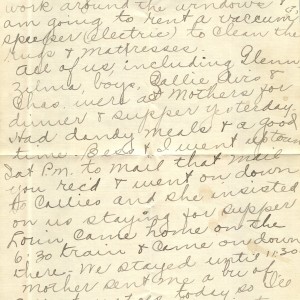 work around the windows & I
am going to rent a vaccum
speeper (Electric) to clean the
Rugs & Mattresses.
All of us including Glenn
Zilma, boys, Callie, Airs &
Chas. were at Mothers for
dinner & supper yesterday
Had dandy meals & a good
time. Bess & I went uptown
Sat Pm. to mail that mail
you rec'd & went on down
to Callies and she insisted
on us staying for supper
Louin came home on the
6:30 train & came on down
there. We stayed until 11:30
Mother sent me a bu of
today so I'll